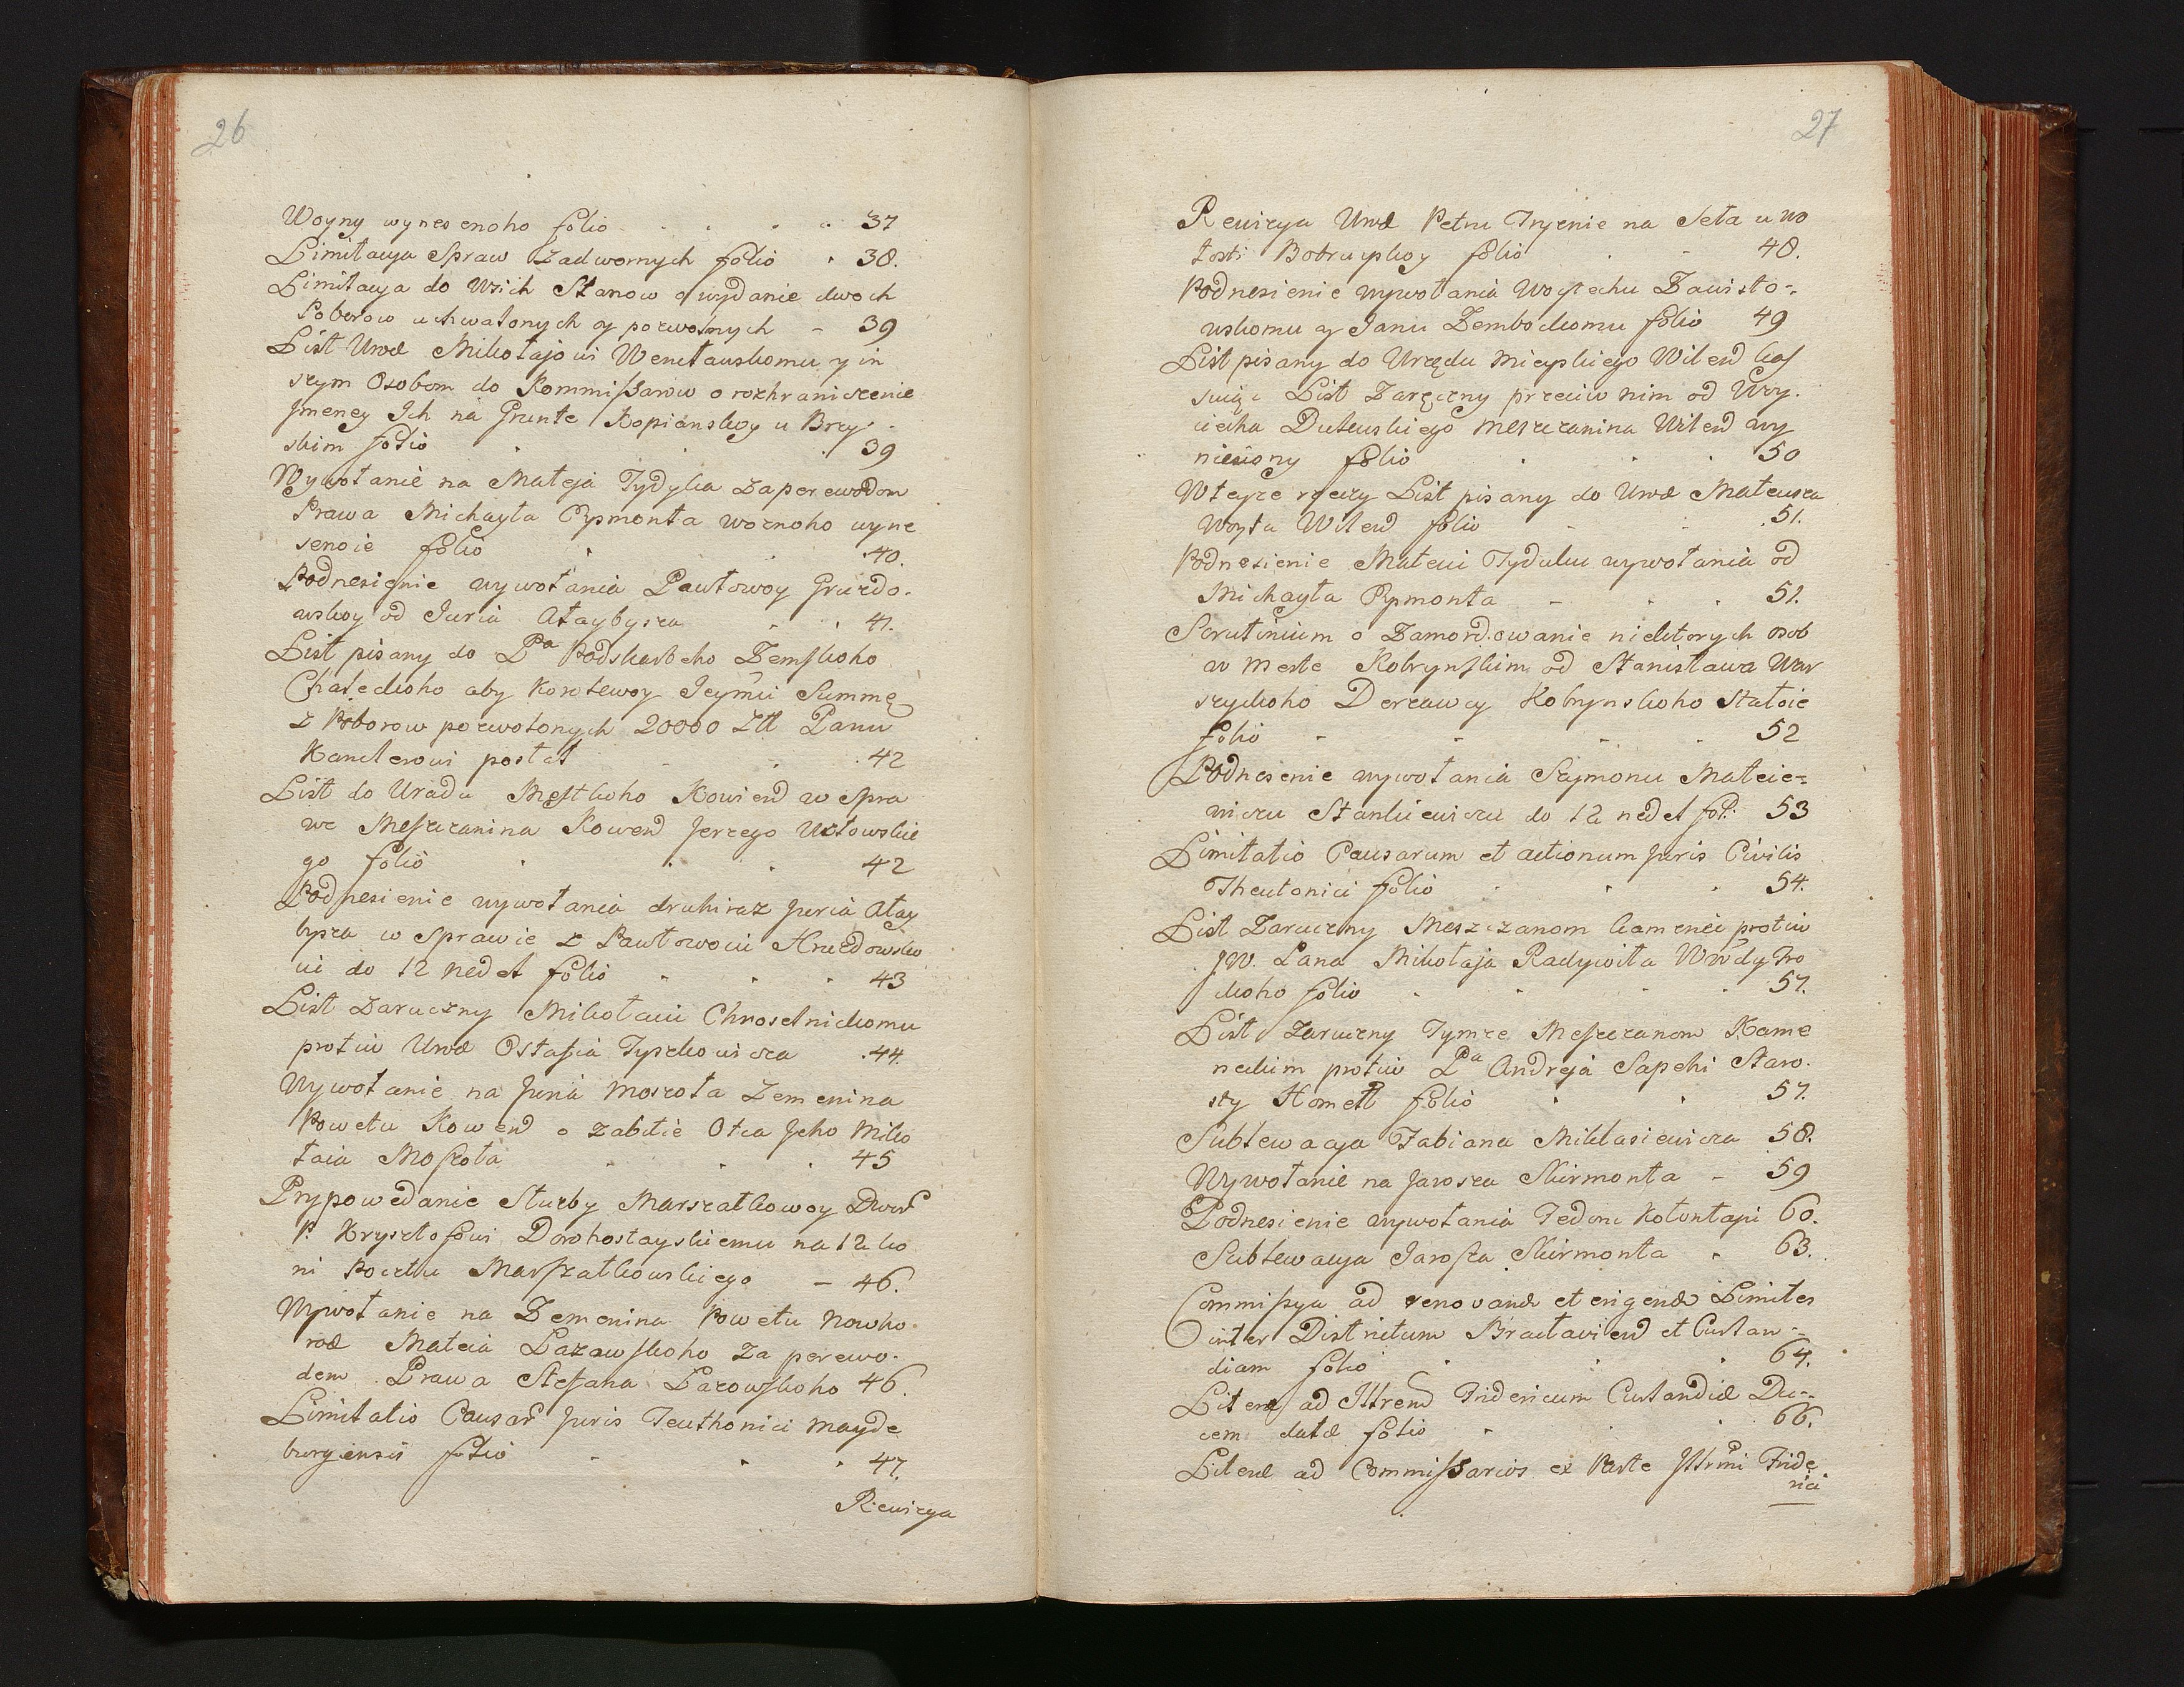 26
Woyny wynesenoho folio 37
Limitacya Spraw Zadwornych folio 38.
Limitacya do Wsich Stanow o wydanie dwoch
Poborow uchwalonych y pozwolnych - 39
List Urod Mikołajowi Wencławskomu y in
szym Osobom do Kommissarow o rozhraniczenie
Jmeney Ich na Grunte Kopianskoy u Brzy
skim folio 39
Wywołanie na Mateja Tydyka za perewodom
Prawa Michayła Rymonta woznoho wyne
senoie folio 40.
Podnesienie wywołania Pawłowoy Gruzdo-
wskoy od Juria Ałaybysza 41.
List pisany do Pa Podskarbeho Zemskoho
Chaleckoho aby Korolewoy Jeymci Summę
z Poborow pozwolonych 20000 Ztl Panu
Kanclerowi posłał 42
List do Uradu Mestkoho Kowien w Spra
we Meszczanina Kowen Jerzego Uzłowskie
go folio 42
Podnesienie wywołania druhiraz Juria Ałay
bysza w Sprawie z Pawłowoiu Hruzdowsko
iu do 12 nedel folio 43
List Zaruczny Mikołaiu Chroselnickomu
protiw Urod Ostafia Tyszkowicza 44.
Wywołanie na Juria Moszota Zemenina
Powetu Kowen o zabitie Otca Jeho Miko
łaia Moszota 45
Prypowedanie Służby Marszałkowoy Dwor
P. Krysztofowi Dorohostayskiemu na 12 ko
ni Pocztu Marszałkowskiego - 46.
Wywołanie na Zemenina Powetu Nowho
rod Mateia Łazowskoho za perewo-
dem Prawa Stefana Łazowskoho 46.
Limitatio Causar Juris Teuthonici Mayde
burgensis folio 47.
Rewizya
27
Rewizya Urod Petru Tryznie na Seła u wo
łosti Bobruyskoy folio 48.
Podnesienie wywołania Woytechu Zawisto-
wskomu y Janu Zembockomu folio 49
List pisany do Urzędu Mieyskiego Wilen kas
suiąc List Zaręczny przeciw nim od Woy-
ciecha Dutkuskiego Meszczanina Wilen wy
niesiony folio 50
W teyze rzeczy List pisany do Urod Mateusza
Woyta Wilen folio 51.
Podnesienie Mateiu Tyduku wywołania od
Michayła Rymonta - 51.
Scrutinium o Zamordowanie niektorych osob
w meste Kobrynskim od Stanisława War
szyckoho Derzawcy Kobrynskoho Stałoie
folio - 52
Podnesenie wywołania Szymonu Mateie-
wiczu Stankiewiczu do 12 nedel fol: 53
Limitatio Causarum et actionum Juris Civilis
Theutonici folio 54.
List Zaruczny Meszczanom kamenec protiw
JW. Pana Mikołaja Radywiła Wwdy Tro
ckoho folio 57.
List Zaruczny Tymze Meszczanom Kame
neckim protiw Pa Andreja Sapehi Staro-
sty Homel folio 57.
Sublewacya Fabiana Mikłasiewicza 58.
Wywołanie na Jarosza Skirmonta - 59
Podnesienie wywołania Fedoru Kołontayu 60.
Sublewacya Jarosza Skirmonta 63.
Commissya ad renovand et erigend Limites
inter Districtum Bracłavien et Curlan-
diam folio 64.
Literae ad Illrem Fridericum Curlandiae Du-
cem datae folio 66.
Literae ad Commissarios ex Parte Illrmi Fride
rici